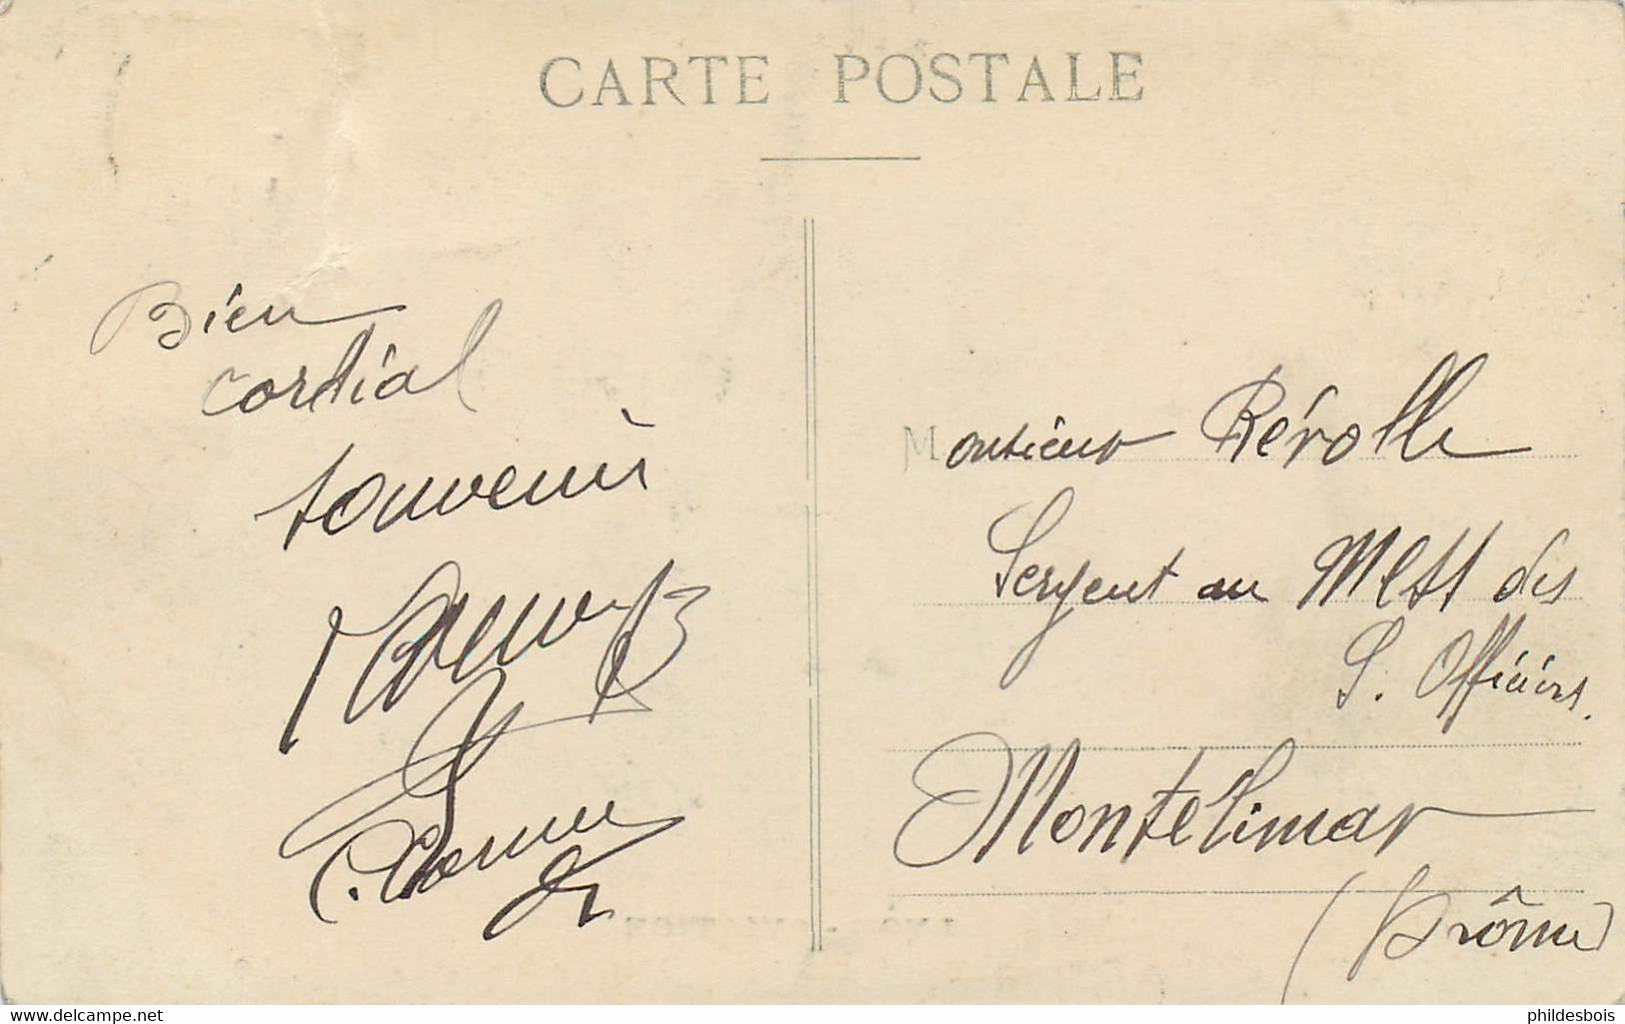 CARTE POSTALE
Bien
cordial
souvenir
Monsieur Rérolle
Sergent au Mess des
S. Officiers.
Montelimar
(Drôme)
delcampe.net
phildesbois